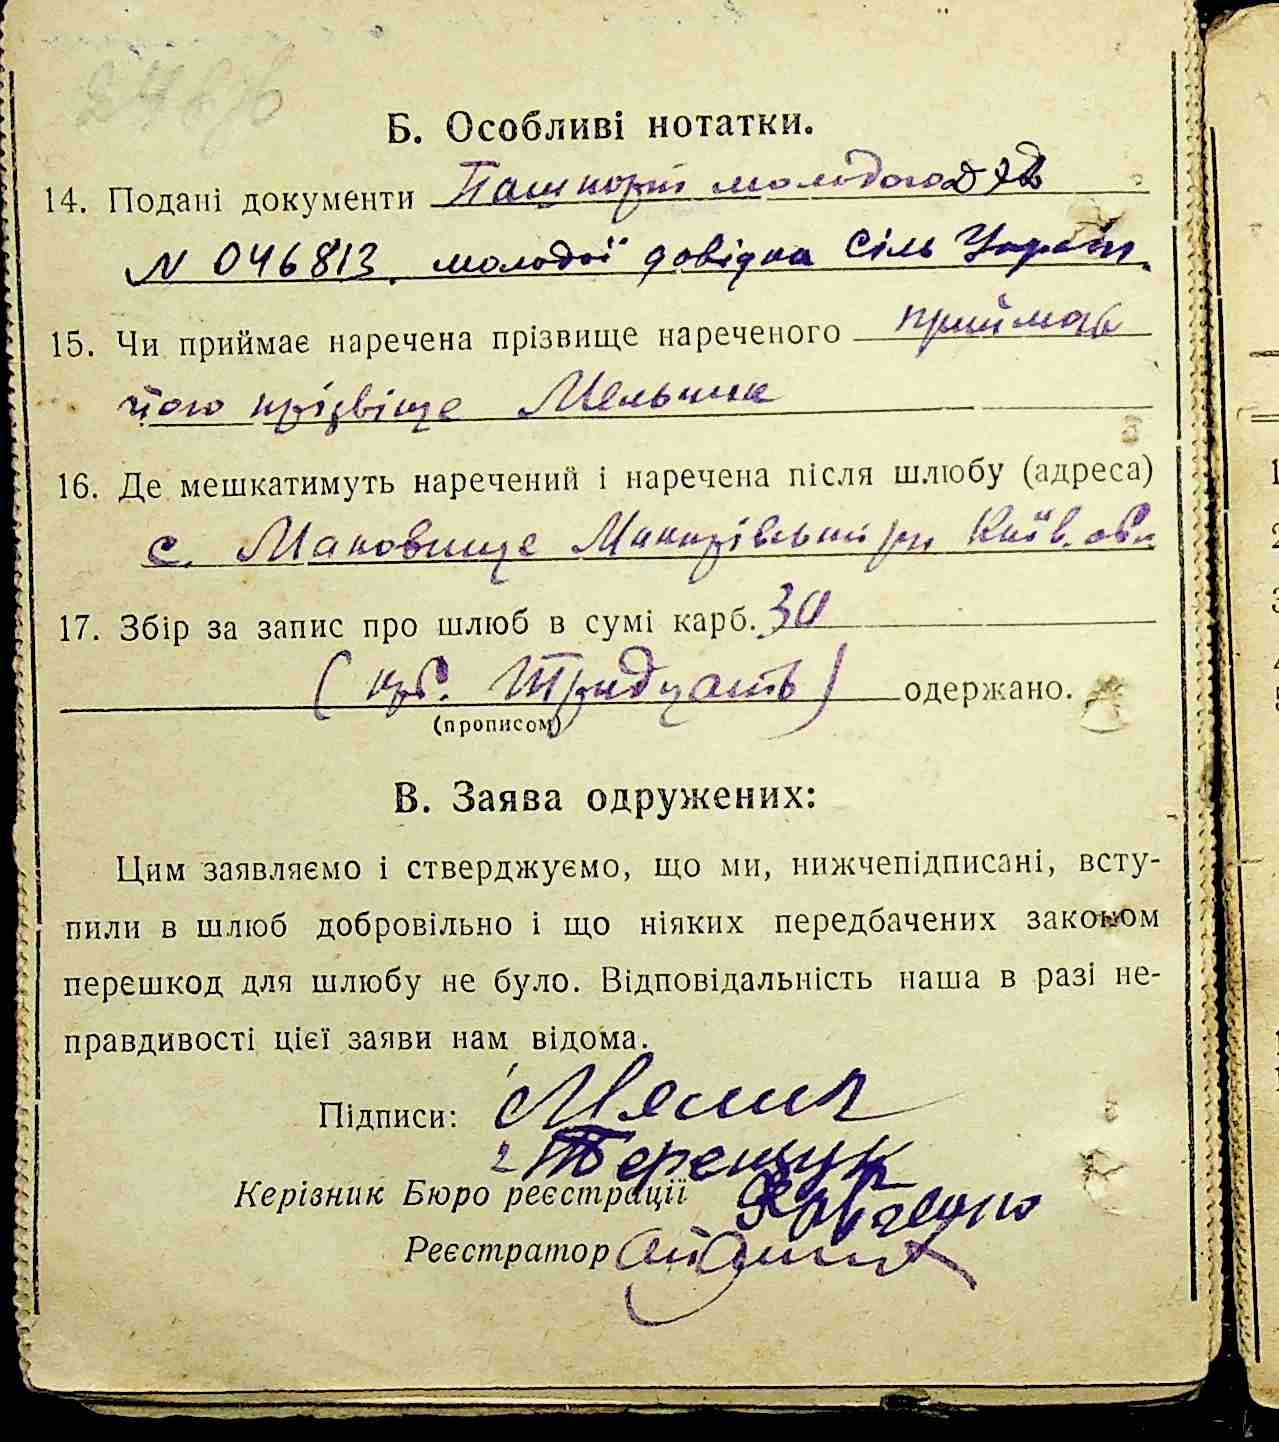 Б. Особливі нотатки.
14. Подані документи Пашпорт молодого
N 046813. молодої довідка Сіль Управи.
15. Чи приймає наречена прізвище нареченого приймає
його прізвіще Мельник
16. Де мешкатимуть наречений і наречена після шлюбу (адреса)
с. Маковище Макарівський рн Київ. обл.
17. Збір за запис про шлюб в сумі карб. 30
(крб. Тридцать) одержано.
(прописом)
В. Заява одружених:
Цим заявляємо і стверджуємо, що ми, нижчепідписані, всту-
пили в шлюб добровільно і що ніяких передбачених законом
перешкод для шлюбу не було. Відповідальність наша в разі не-
правдивості цієї заяви нам відома.
Підписи:
Терещук
Керівник Бюро реєстрації
Реєстратор